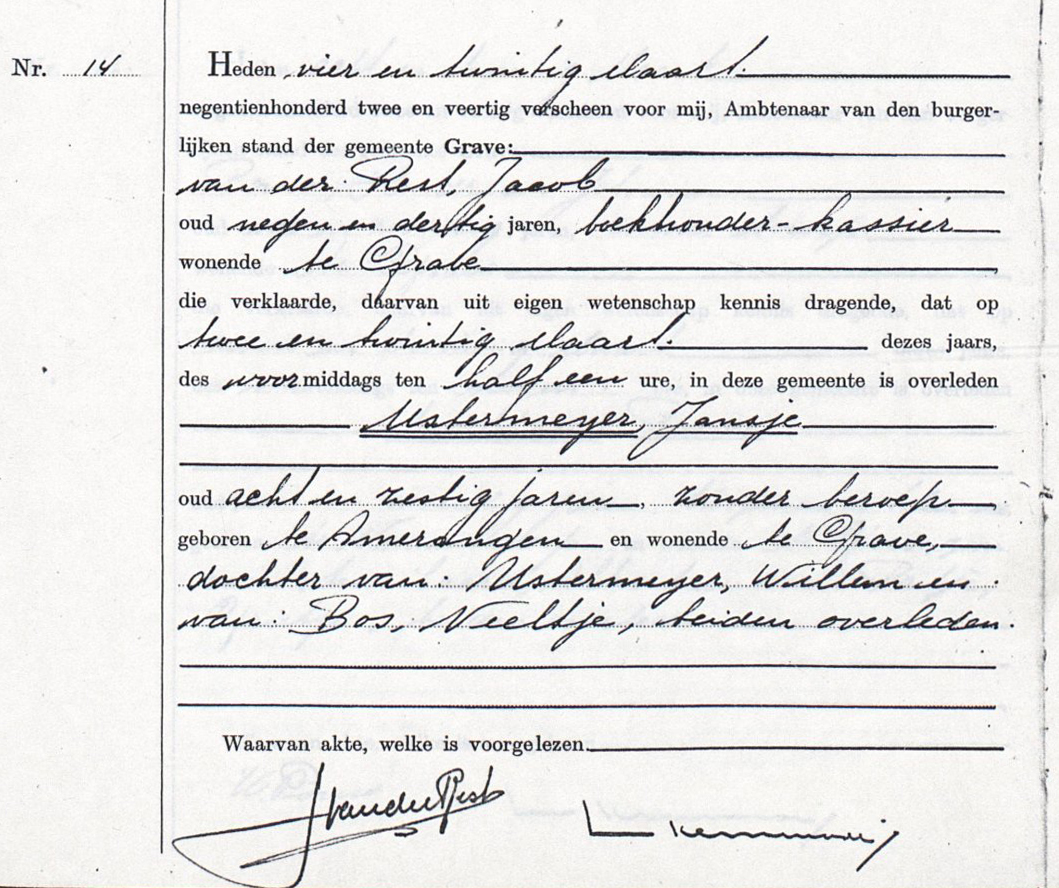 Nr. 14
Heden vier en twintig Maart.
negentienhonderd twee en veertig verscheen voor mij, Ambtenaar van den burger-
lijken stand der gemeente Grave:
van der Rest, Jacob
oud negen en dertig jaren, boekhouder-kassier
wonende te Grave
die verklaarde, daarvan uit eigen wetenschap kennis dragende, dat op
twee en twintig Maart. dezes jaars,
des voormiddags ten half een ure, in deze gemeente is overleden
Ustermeyer, Jansje
oud acht en zestig jaren, zonder beroep
geboren te Amerongen en wonende te Grave,
dochter van: Ustermeyer, Willem en
van: Bos, Neeltje, beiden overleden.
Waarvan akte, welke is voorgelezen.
JvanderRest